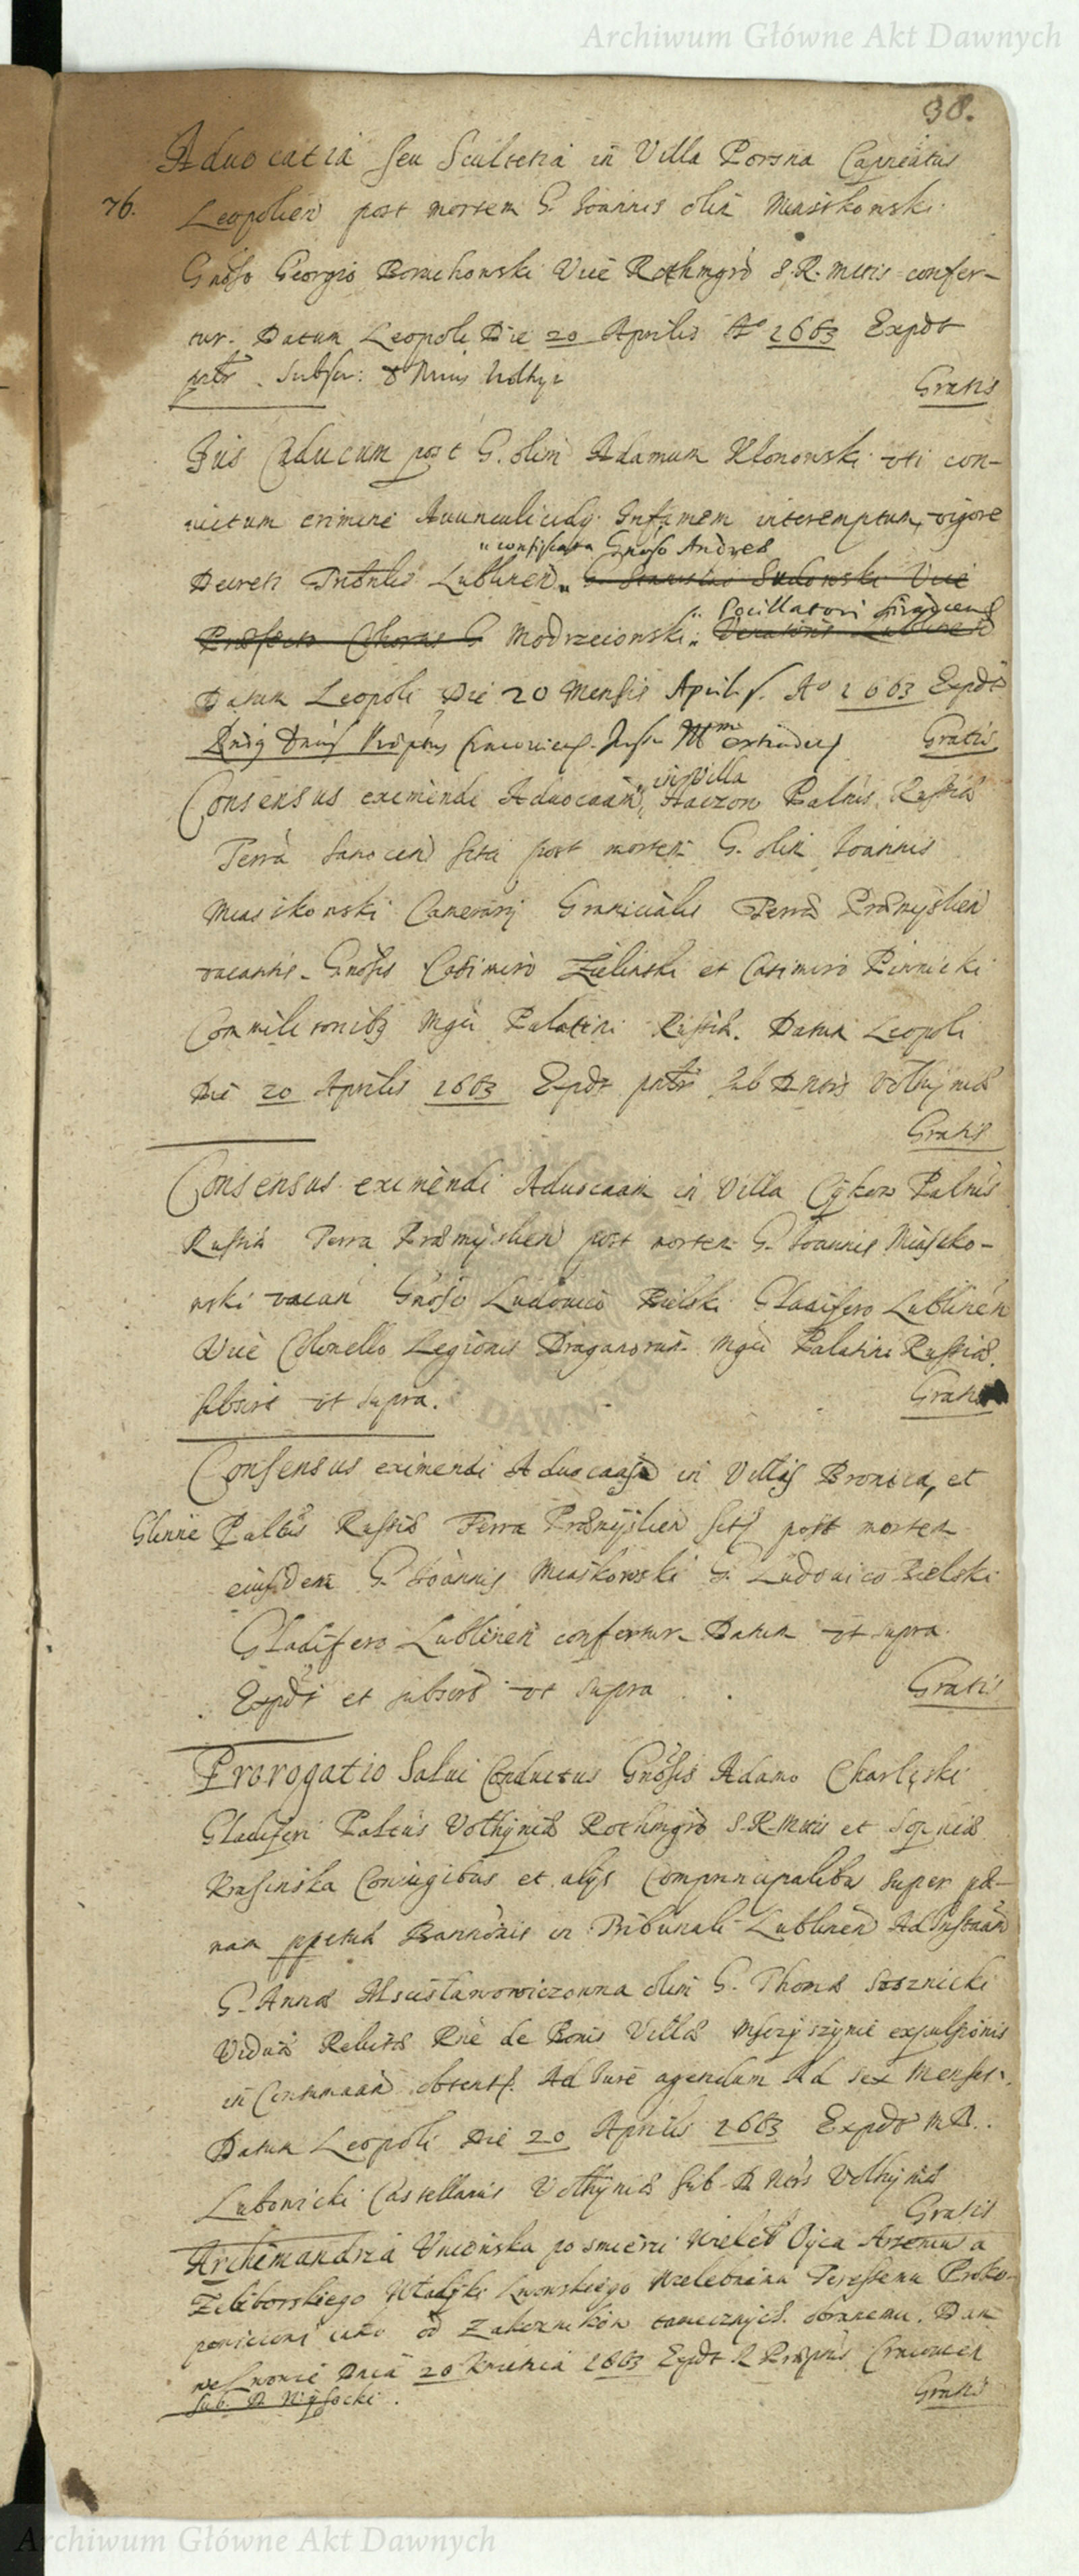 Archiwum Główne Akt Dawnych
38.
Aduocatia seu Scultetia in Villa Porsna Capneatus
76.
Leopolien post mortem G. Ioannis olim Miaskowski
Gnoso Georgio Boruchowski Vice Rothmgro S. R. Mttis confer-
tur. Datum Leopoli Die 20 Aprilis Ao 1663 Expdt
pntr. Subscr:
Gratis
Ius Caducum post G. olim Adamum Klonowski uti con-
uictum crimine Auunculicidy Infamem interemptum, vigore
confiscata Gnoso Andreae
Decreti Tribnlis Lublinen G. Stanislao Sudowski Vice
Pocillatori
Praefecto Modrzeionski
Datum Leopoli Die 20 Mensis Aprilis. Ao 1663 Expdt
Gratis
in Villa
Consensus eximendi Aduocaam Haczow Palnus Russiae
Terra Sanocen siti post mortem G. olim Ioannis
Miaskowski Camerarij Granicialis Terrae Praemyslien
vacantis. Gnosis Casimiro Zielinski et Casimiro Pinnicki
Commilitonibq Mgci Palatini Russiae. Datum Leopoli
Die 20 Aprilis 1663 Expdt pntr Sub D Noris Volhyniae
Gratis
Consensus eximendi Aduocaam in Villa Cykow Palnus
Russiae Terra Praemyslien post mortem G. Ioannis Miasko-
wski vacan Gnoso Ludouico Bielski Gladifero Lublinen
Vice Colonello Legionis Draganorum Mgci Palatini Russiae.
subscr ut supra.
Gratis
Consensus eximendi Aduocaas in Villis Bronica, et
Glinne Paltus Russiae Terra Praemyslien sitis post mortem
eiusdem G. Ioannis Miaskowski G. Ludouico Bielski
Gladifero Lublinen confertur Datum ut supra.
Expdt et subscr ut supra
Gratis
Prorogatio Salui Conductus Gnosis Adamo Charlęski
Gladiferi Paltus Volhyniae Rothmgro S. R. Mttis et Sophiae
Krasinska Coniugibus et alijs Comprincipalibus super pae-
nam ppetuae Bannionis in Tribunali Lublinen Ad Instaam
G. Annae Mscisławowiczowna olim G. Thomae Sosznicki
Viduae Relictae Rne de Bonis Villae expulsionis
in Contumaam obtent. Ad Iure agendum Ad sex Menses.
Datum Leopoli Die 20 Aprilis 1663 Expdt M D.
Lubowicki Castellanus Volhyniae Sub D Noris Volhyniae
Gratis
Archimandria Uniowska po smierci Wieleb Oyca Arseniusza
Zeliborskiego Władyki Lwowskiego Wielebnemu
od Zakonnikow tamecznych obranemu. Dan
we Lwowie Dnia 20 Kwietnia 1663 Expdt R Praeptus Cracouien
Sub. D Wysocki.
Gratis
Archiwum Główne Akt Dawnych